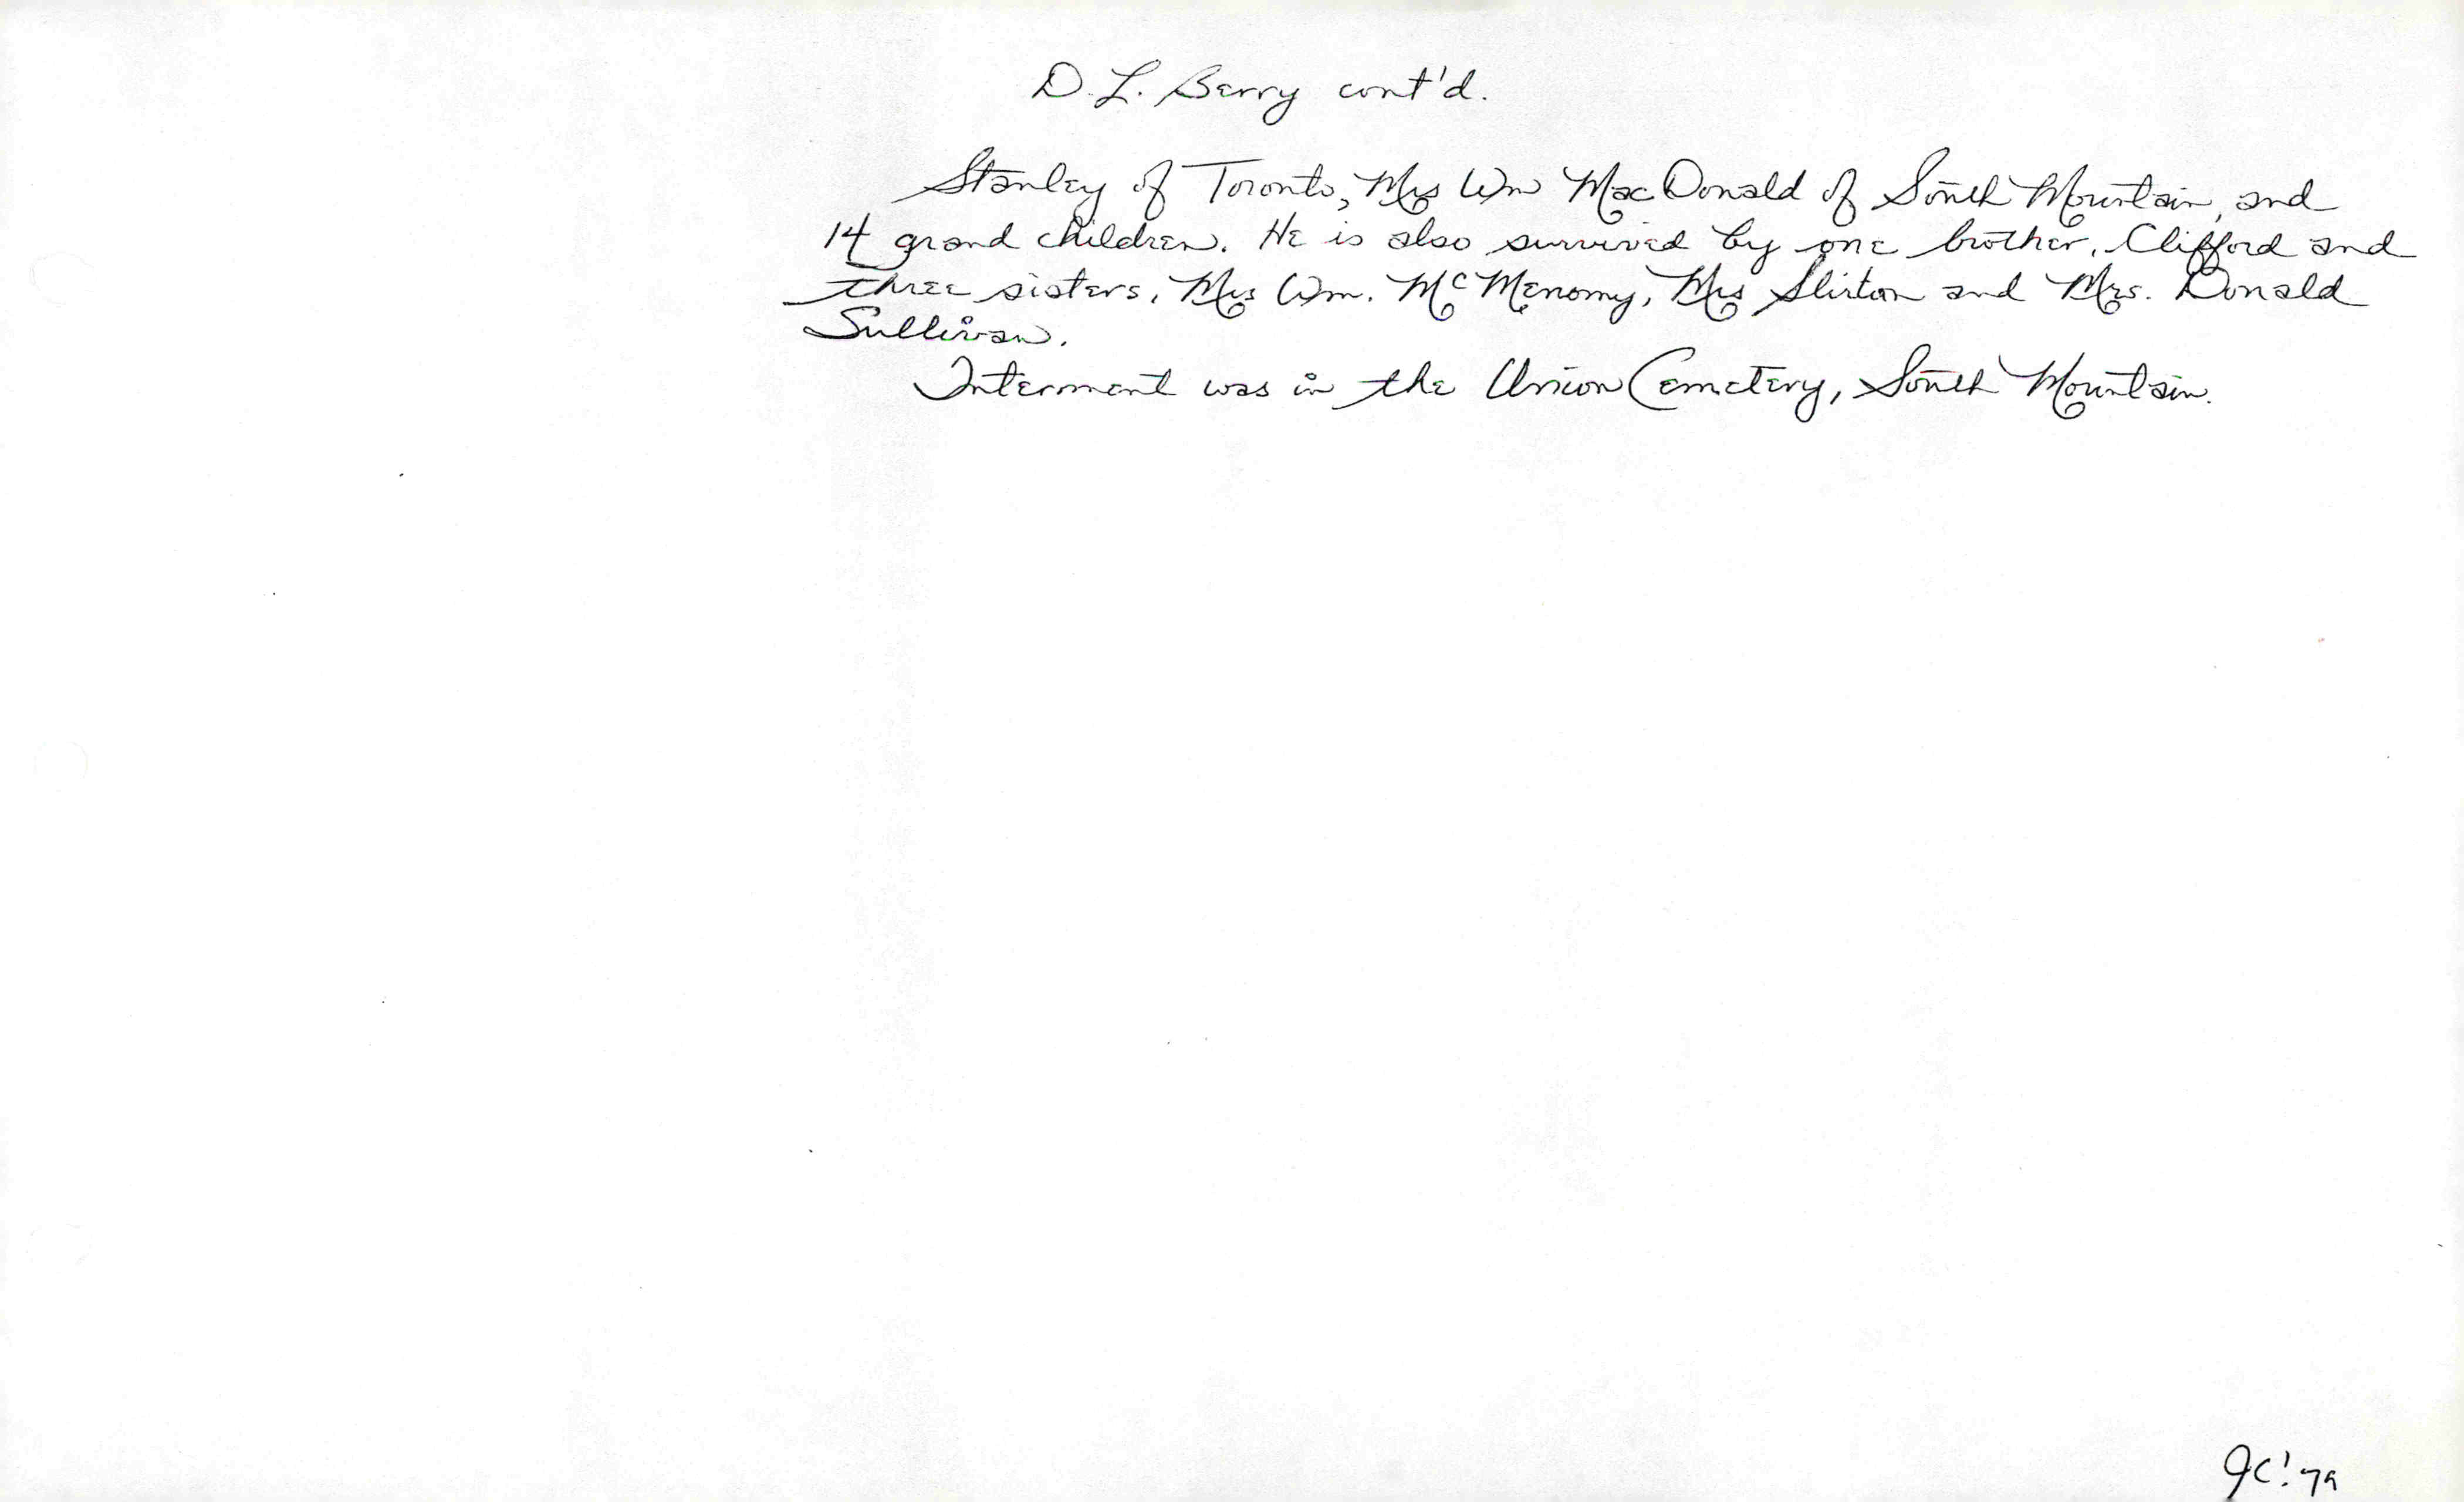 D. L. Berry cont'd.
Stanley of Toronto, Mrs Wm MacDonald of South Mountain, and
14 grand children. He is also survived by one brother, Clifford and
three sisters, Mrs Wm. McMenomy, Mrs Slirton and Mrs. Donald
Sullivan.
Interment was in the Union Cemetery, South Mountain.
JC '79